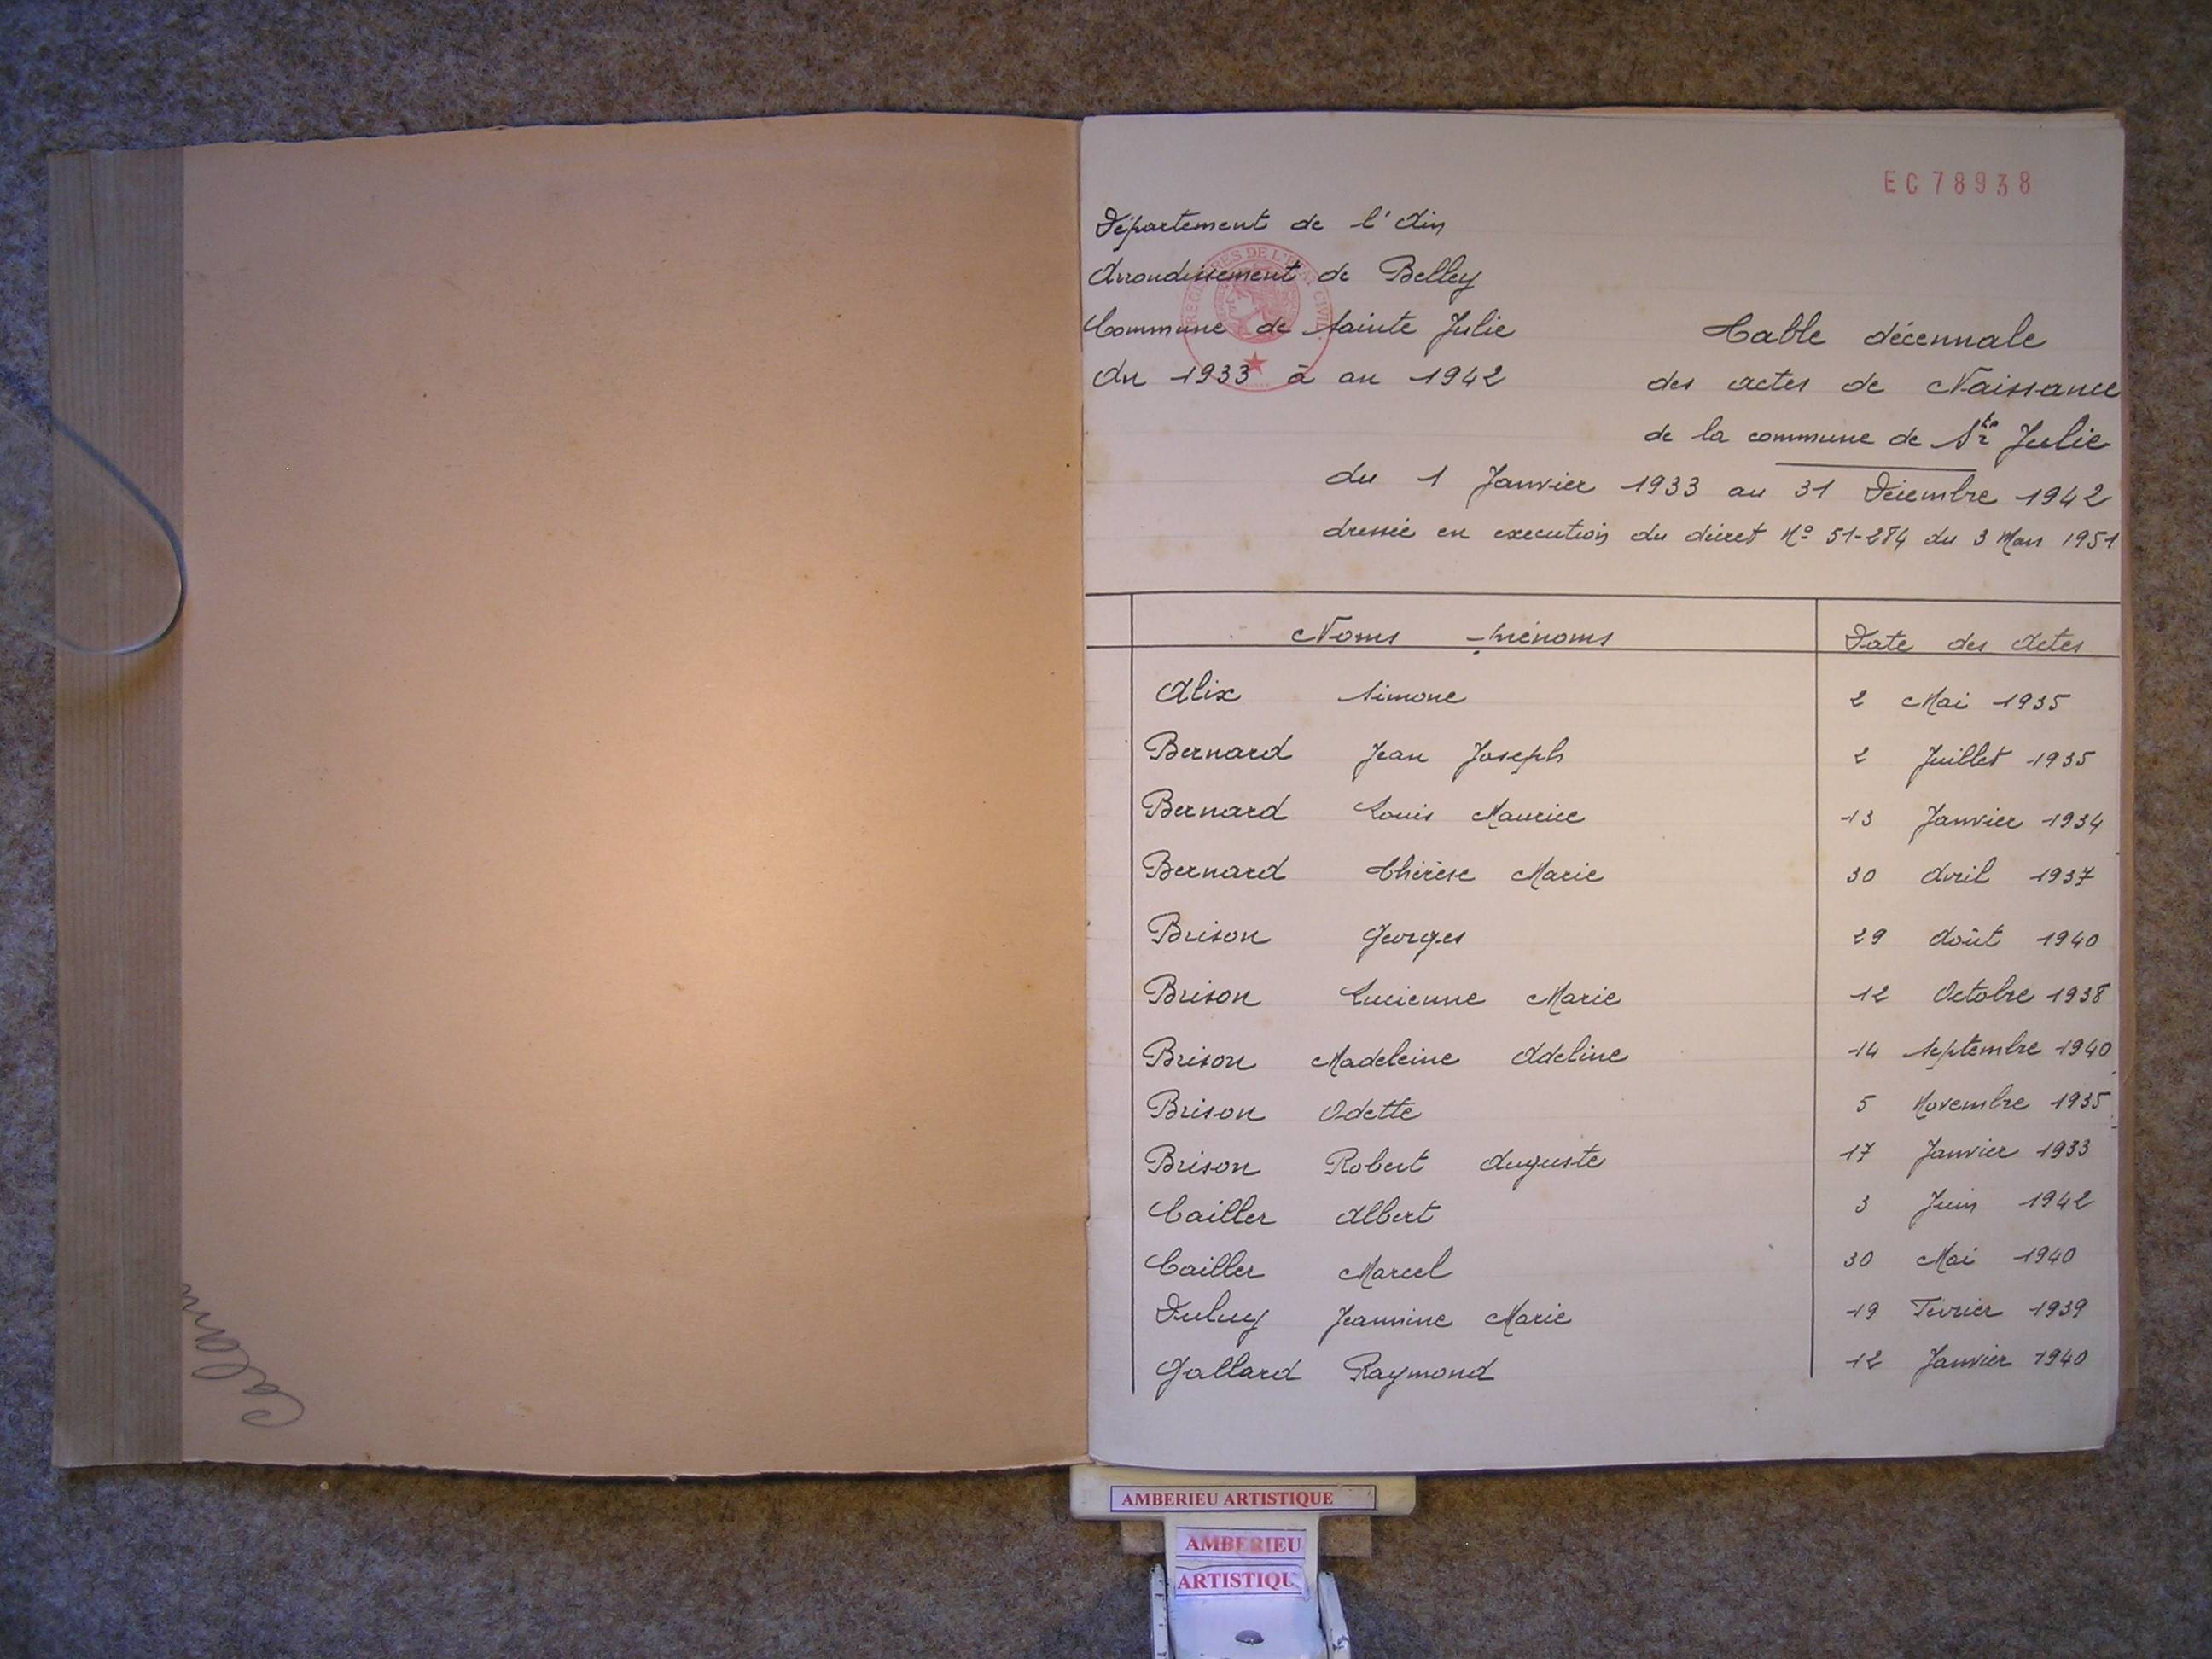 EC 78938
Département de l'Ain
Arrondissement de Belley
Commune de Sainte Julie
du 1933 à au 1942
REGISTRES DE L'ETAT CIVIL
Table décennale
des actes de Naissance
de la commune de Ste Julie
du 1 Janvier 1933 au 31 Décembre 1942
dressée en execution du décret No 51-284 du 3 Mars 1951
Noms - prénoms Date des Actes
Alix Simone 2 Mai 1935
Bernard Jean Joseph 2 Juillet 1935
Bernard Louis Maurice 13 Janvier 1934
Bernard Thérèse Marie 30 Avril 1937
Brison Georges 29 Août 1940
Brison Lucienne Marie 12 Octobre 1938
Brison Madeleine Adeline 14 Septembre 1940
Brison Odette 5 Novembre 1935
Brison Robert Auguste 17 Janvier 1933
Cailler Albert 3 Juin 1942
Cailler Marcel 30 Mai 1940
Jeannine Marie 19 Février 1939
Gallard Raymond 12 Janvier 1940
AMBERIEU ARTISTIQUE
AMBERIEU
ARTISTIQU